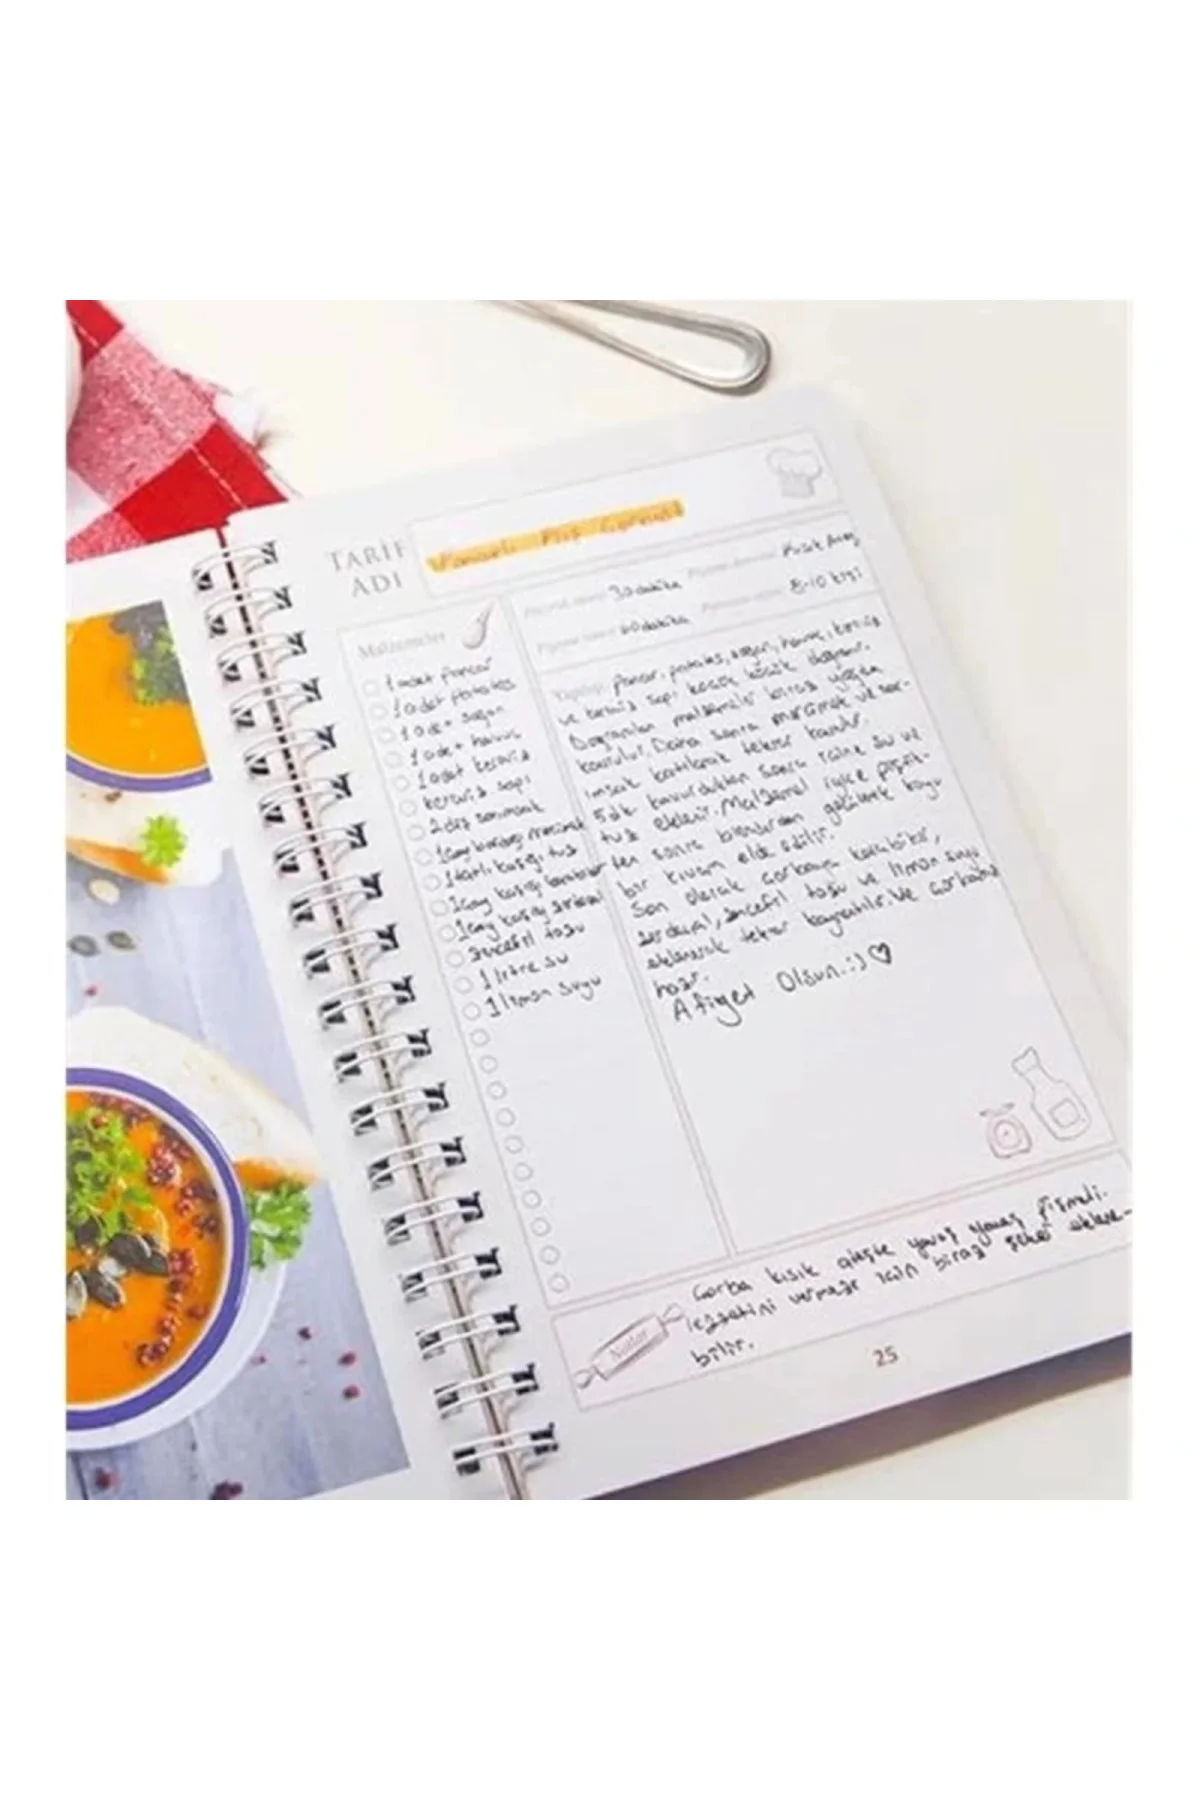 TARİF
ADI
Pancarlı Kış Çorbası
30 dakika
Kısık Ateş
40 dakika
8-10 kişi
Malzemeler
1 adet pancar
1 adet patates
1 adet soğan
1 adet havuç
1 adet kereviz
kereviz sapı
2 diş sarımsak
1 tatlı kaşığı tuz
1 çay kaşığı
1 çay kaşığı zerdeçal
zencefil tozu
1 litre su
1 limon suyu
Yapılışı: pancar, patates, soğan, havuç, kereviz
ve kereviz sapı küçük küçük doğranır.
Doğranılan malzemeler biraz yağda
kavrulur. Daha sonra mercimek ve sar-
ımsak katılarak tekrar kavrulur.
5 dk kavurduktan sonra içine su ve
tuz eklenir. Malzemeler iyice piştik-
ten sonra blendırdan geçirilerek koyu
bir kıvam elde edilir.
Son olarak çorbaya karabiber,
zerdeçal, zencefil tozu ve limon suyu
eklenerek tekrar kaynatılır. Ve çorbamız
hazır.
Afiyet Olsun. :)
Notlar
Çorba kısık ateşte yavaş yavaş pişmeli.
lezzetini vermesi için biraz şeker eklene-
bilir.
25